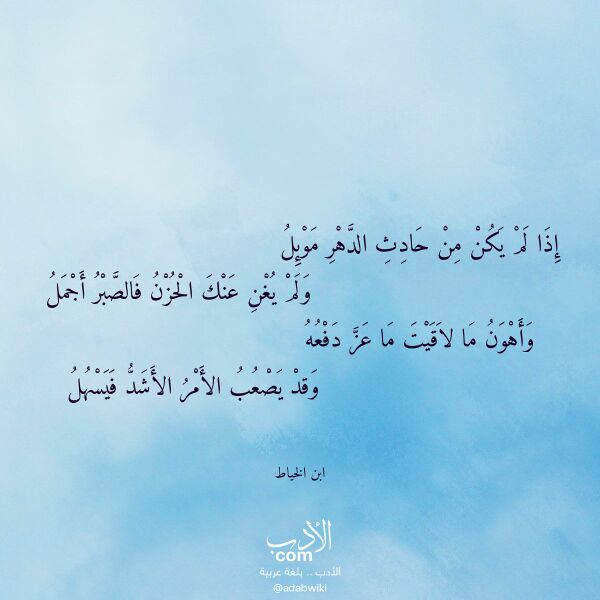 إِذَا لَمْ يَكُنْ مِنْ حَادِثِ الدَّهْرِ مَوْئِلُ
وَلَمْ يُغْنِ عَنْكَ الْحُزْنُ فَالصَّبْرُ أَجْمَلُ
وَأَهْوَنُ مَا لاَقَيْتَ مَا عَزَّ دَفْعُهُ
وَقدْ يَصْعُبُ الأَمْرُ الأَشَدُّ فَيَسْهُلُ
ابن الخياط
الأدب
com
الأدب .. بلغة عربية
@adabwiki